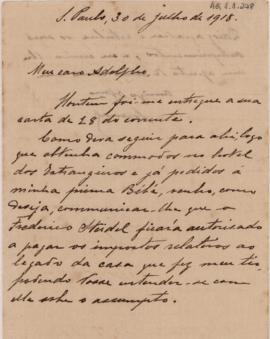 AG.1.1.228
S. Paulo, 30 de julho de 1918.
Meu caro Adolpho,
Hontem foi-me entregue a sua
carta de 28 do corrente.
Como deva seguir para ahi logo
que obtenha commodos no hotel
dos Estrangeiros e já pedidos á
minha prima Bébé, venho, como
deseja, communicar-lhe que o
Frederico Steidel ficará autorisado
a pagar os impostos relativos ao
legado da casa que fez meu tio,
podendo Você entender-se com
elle sobre o assumpto.